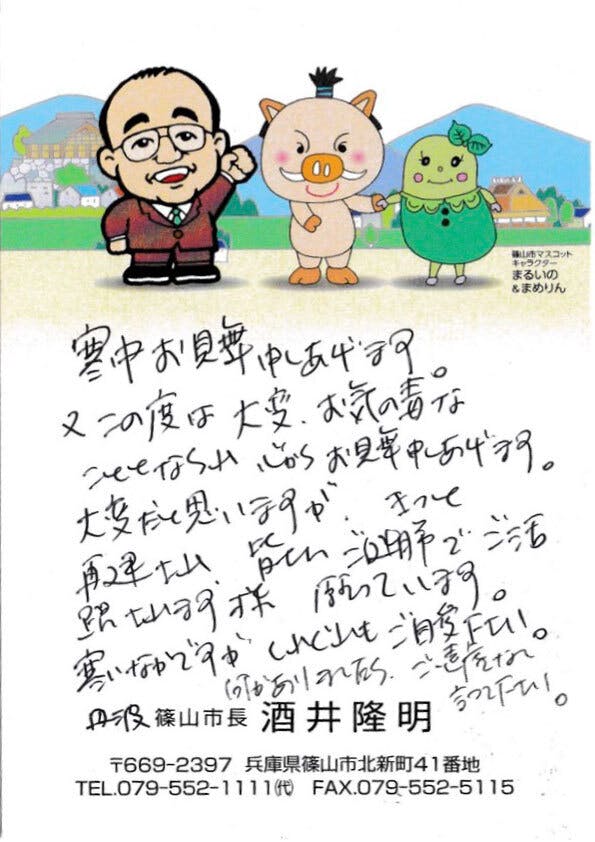 篠山市マスコット
キャラクター
まるいの
&まめりん
寒中お見舞申しあげます。
又この度は大変、お気の毒な
ことになられ 心からお見舞申しあげます。
大変だと思いますが、きっと
再建され、皆さん ご健勝でご活
躍されます様 願っています。
寒いなかですが くれぐれもご自愛下さい。
何かありましたら、ご遠慮なく
言って下さい。
丹波 篠山市長 酒井隆明
〒669-2397 兵庫県篠山市北新町41番地
TEL.079-552-1111㈹ FAX.079-552-5115